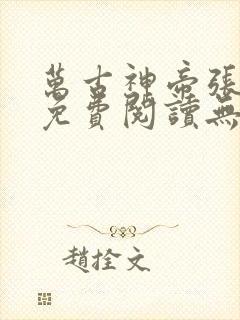 萬古神帝張
免費閱讀無
趙拴文